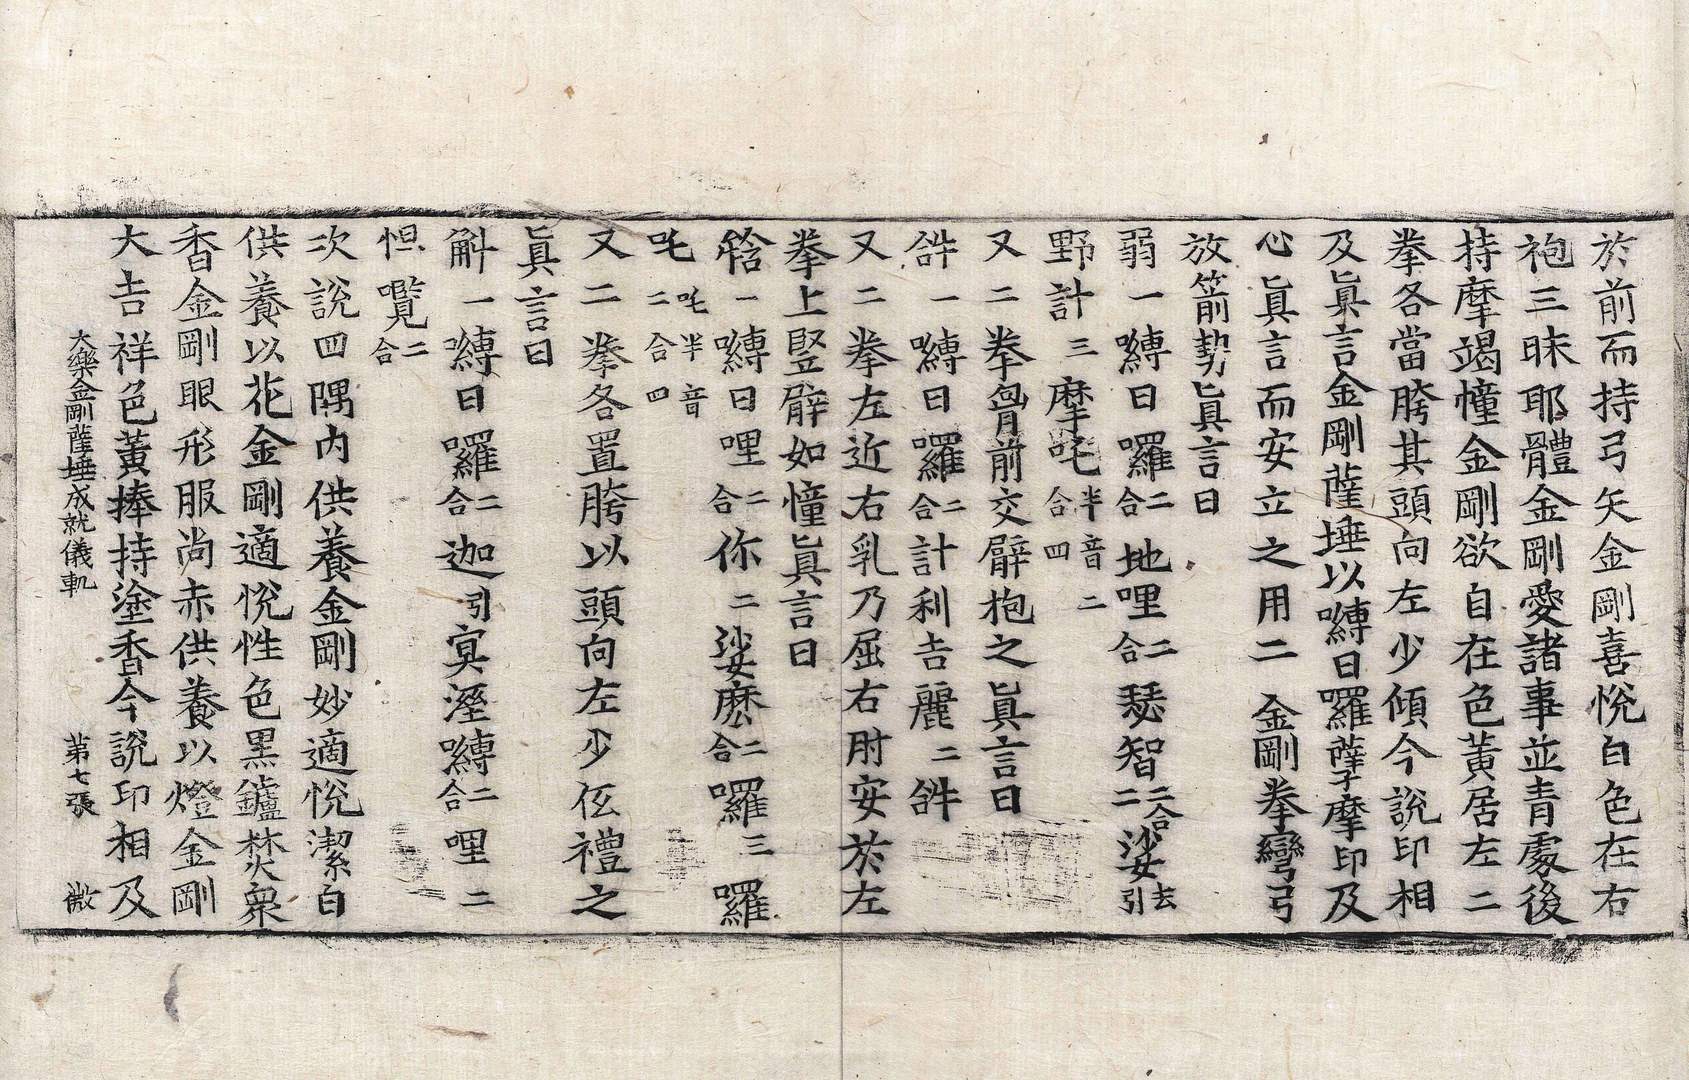 於前而持弓矢金剛喜悅白色在右
袍三昧耶體金剛愛諸事並青處後
持摩竭幢金剛欲自在色黃居左二
拳各當胯其頭向左少傾今說印相
及眞言金剛薩埵以嚩日囉薩埵摩印及
心眞言而安立之用二金剛拳彎弓
放箭勢眞言曰
弱一嚩日囉二合地哩二合瑟智二合二娑去引
野計三摩吒半音二合四
又二拳胷前交臂抱之眞言曰
𤙖一嚩日囉二合計利吉麗二𤙖
又二拳左近右乳乃屈右肘安於左
拳上竪臂如幢眞言曰
鑁一嚩日哩二合你二娑麽二合囉三囉
吒吒半音二合四
又二拳各置胯以頭向左少低禮之
眞言曰
斛一嚩日囉二合迦引冥溼嚩二合哩二
怛㘕二合
次說四隅內供養金剛妙適悅潔白
供養以花金剛適悅性色黑鑪焚衆
香金剛眼形服尚赤供養以燈金剛
大吉祥色黃捧持塗香今說印相及
大樂金剛薩埵成就儀軌 第七張 微